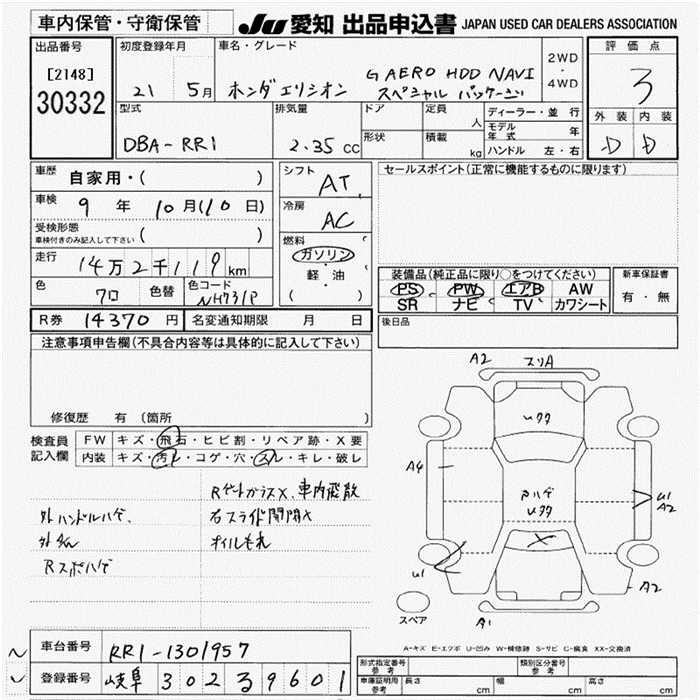 車内保管・守衛保管
JU 愛知 出品申込書 JAPAN USED CAR DEALERS ASSOCIATION
出品番号
[2148]
30332
初度登録年月
21 5月
車名・グレード
ホンダエリシオン
G AERO HDD NAVI
スペシャル パッケージ
2WD
・
4WD
評価点
3
外装 内装
D D
型式
DBA-RR1
排気量
2.35 CC
ドア
形状
定員 人
積載 kg
ディーラー・並行
モデル年式 年
ハンドル 左・右
車歴
自家用・( )
車検
9年 10月(10日)
受検形態
車検付きのみ記入して下さい ( )
走行
14万2千119km
色
クロ
色替
色コード
NH731P
シフト
AT
冷房
AC
燃料
ガソリン
軽・油
( )
セールスポイント(正常に機能するものに限ります)
装備品(純正品に限り○をつけてください)
PS PW エアB AW
SR ナビ TV カワシート
新車保証書
有・無
R券 14370円 名変通知期限 月 日
後日品
注意事項申告欄(不具合内容等は具体的に記入して下さい)
修復歴 有 (箇所 )
検査員
記入欄
FW キズ・飛石・ヒビ割・リペア跡・X要
内装 キズ・汚レ・コゲ・穴・スレ・キレ・破レ
RゲートガラスX、車内飛散
外ハンドルハゲ、
右スライド開閉X
オイルもれ
Rスポハゲ
A2 スリA
Uクク
A4
Aハゲ
Uクク
U1
A2
X
U1
A2
A1
スペア
A-キズ E-エクボ U-凹み W-補修跡 S-サビ C-腐食 XX-交換済
車台番号 RR1-1301957
登録番号 岐阜 302 る 9601
形式指定番号
参考
類別区分番号
参考
車庫証明用
参考
長さ cm 幅 cm 高さ cm